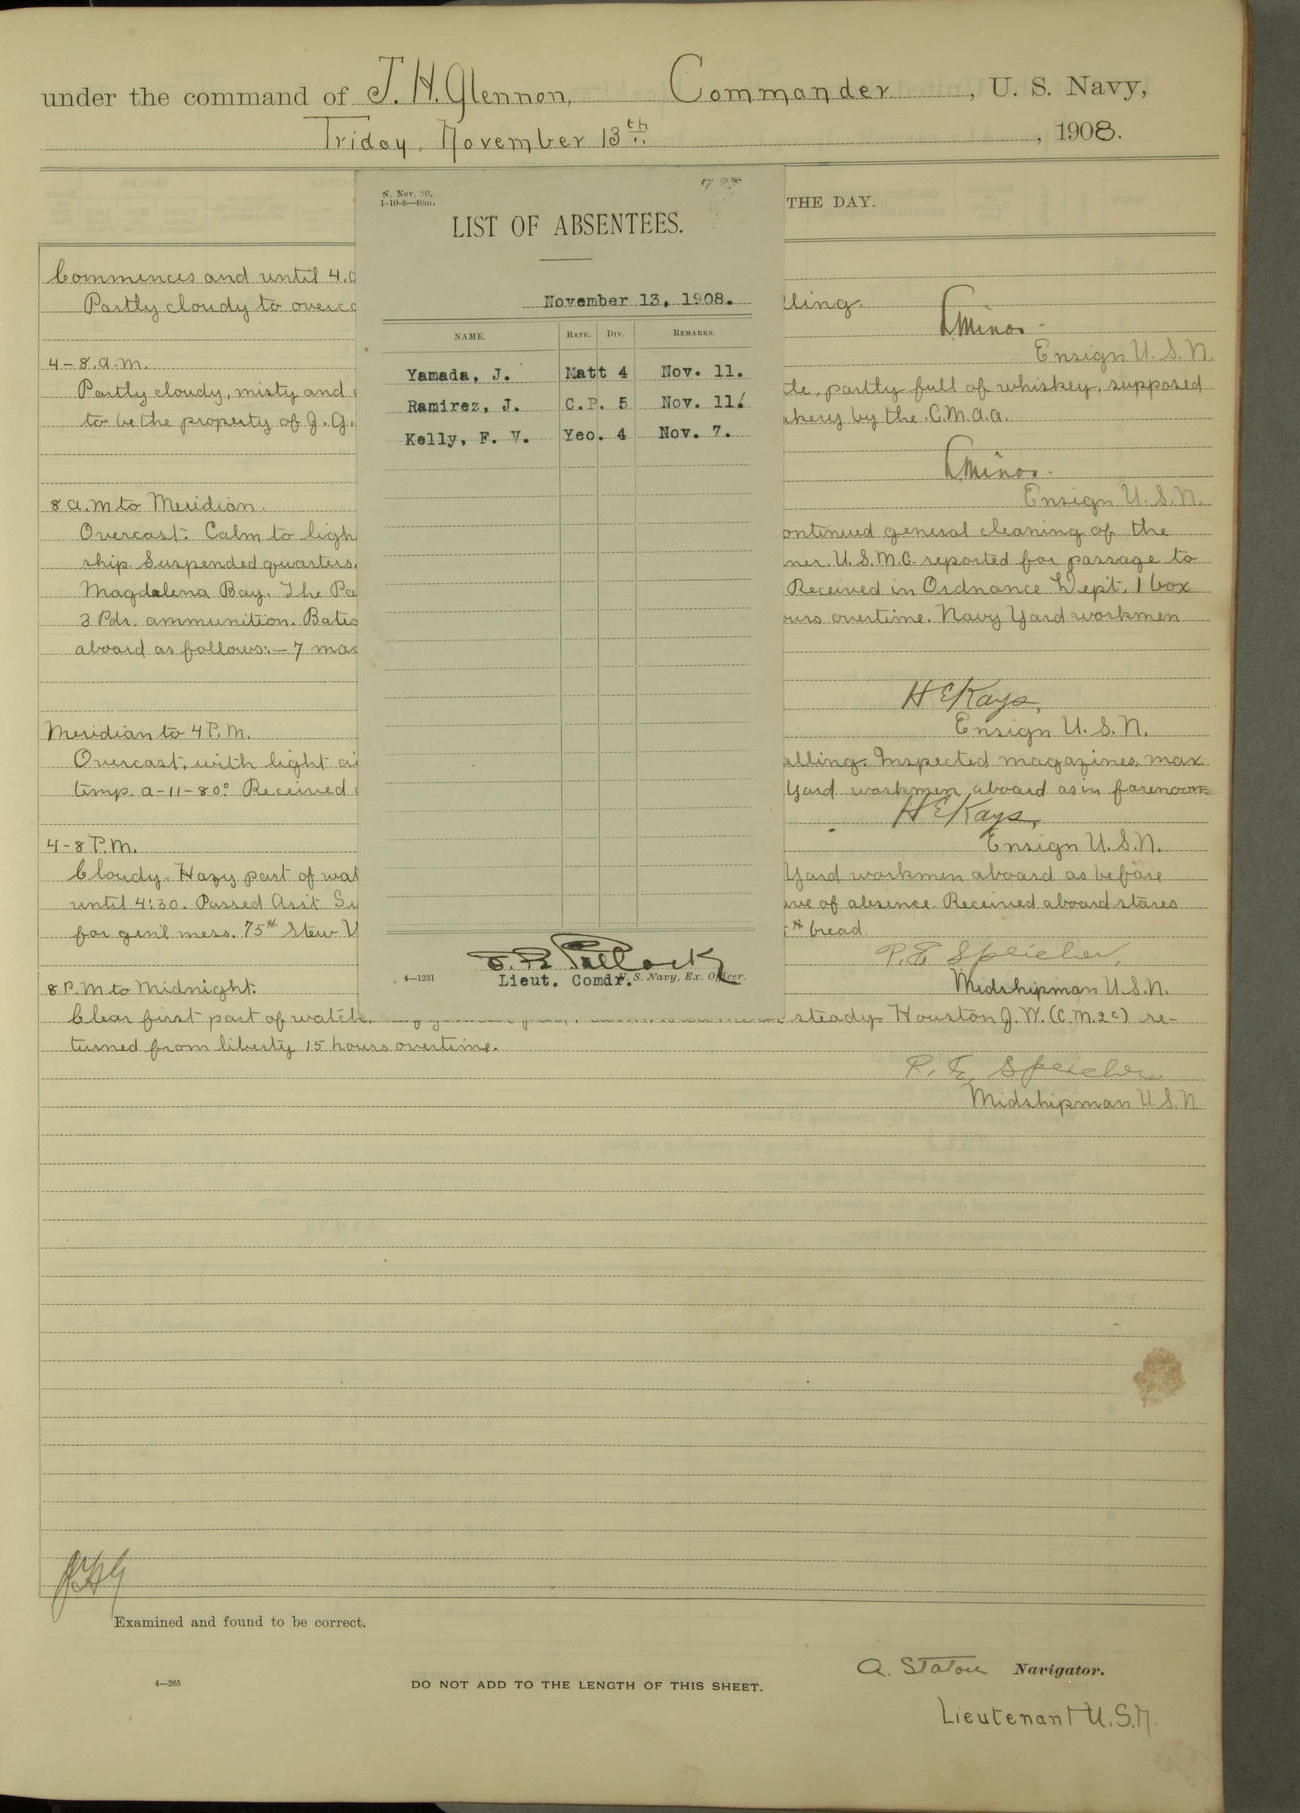 under the command of J. H. Glennon, Commander, U. S. Navy,
Friday, November 13th, 1908.
THE DAY.
N. Nav. 20.
1-10-8—40m.
LIST OF ABSENTEES.
November 13, 1908.
NAME. RATE. DIV. REMARKS.
Yamada, J. Matt 4 Nov. 11.
Ramirez, J. C.P. 5 Nov. 11.
Kelly, F. V. Yeo. 4 Nov. 7.
Lieut. Comdr. U. S. Navy, Ex. Officer.
4—1231
Commences and until 4.
Partly cloudy to overc lling.
L Minor
Ensign U.S.N.
4-8. a.m.
Partly cloudy, misty and tle, partly full of whiskey, supposed
to be the property of J. G. akery by the C.M.a.a.
L Minor
Ensign U.S.N.
8 a.m to Meridian.
Overcast. Calm to ligh ontinued general cleaning of the
ship. Suspended quarters. ner. U.S.M.C. reported for passage to
Magdalena Bay. The Pa Received in Ordnance Dep't. 1 box
3 Pdr. ammunition. Bates ours overtime. Navy Yard workmen
aboard as follows:- 7 mac
H E Kays,
Ensign U.S.N.
Meridian to 4 P.M.
Overcast, with light ai alling. Inspected magazines, max
temp. a-11-80° Received Yard workmen aboard as in forenoon
H E Kays,
Ensign U.S.N.
4-8 P.M.
Cloudy. Hazy part of wat Yard workmen aboard as before
until 4:30. Passed Ass't Su ave of absence. Received aboard stores
for gen'l mess. 75# Stew V # bread
P. E Speicher,
Midshipman U.S.N.
8 P.M to Midnight.
Clear first part of watch. steady. Houston J. W. (C.M.2c) re-
turned from liberty 15 hours overtime.
P. E. Speicher
Midshipman U.S.N
JHG
Examined and found to be correct.
A. Staton Navigator.
4—265
DO NOT ADD TO THE LENGTH OF THIS SHEET.
Lieutenant U.S.N.